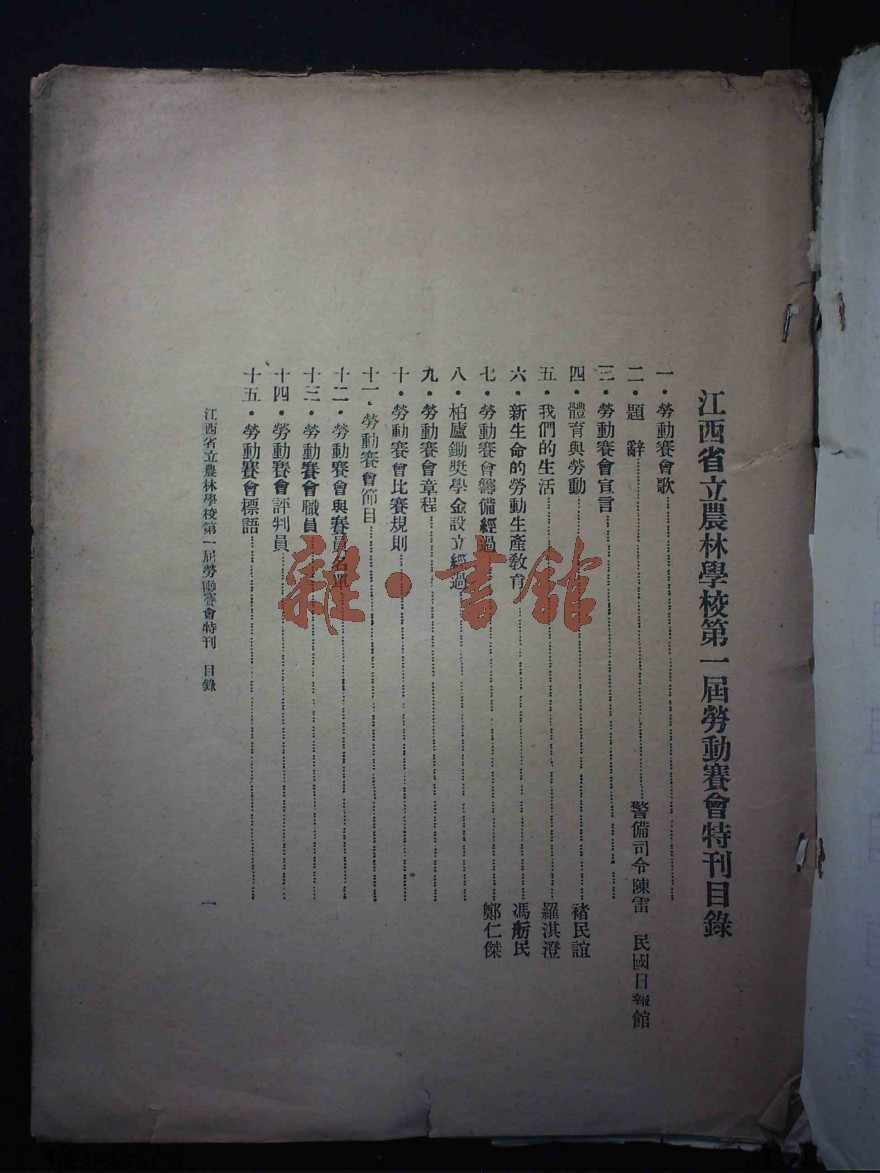 江西省立農林學校第一屆勞動賽會特刊目錄
一•勞動賽會歌
二•題 辭 警備司令陳雷 民國日報館
三•勞動賽會宣言
四•體育與勞動 褚民誼
五•我們的生活 羅淇澄
六•新生命的勞動生產教育 馮舫民
七•勞動賽會籌備經過 鄭仁傑
八•柏廬鋤獎學金設立經過
九•勞動賽會章程
十•勞動賽會比賽規則
十一•勞動賽會節目
十二•勞動賽會與賽員名單
十三•勞動賽會職員
十四•勞動賽會評判員
十五•勞動賽會標語
江西省立農林學校第一屆勞動賽會特刊 目錄
一
雜•書館